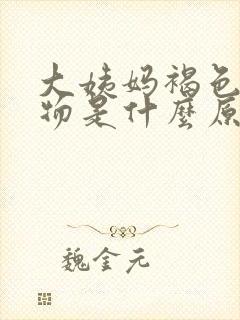 大姨妈褐色
物是什麼原
魏金元